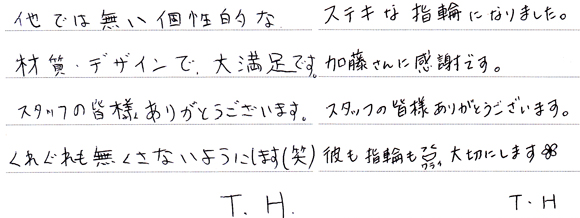 他では無い個性的な
材質・デザインで、大満足です。
スタッフの皆様、ありがとうございます。
くれぐれも無くさないようにします(笑)
T. H.
ステキな指輪になりました。
加藤さんに感謝です。
スタッフの皆様ありがとうございます。
彼も指輪も 大切にします
T・H